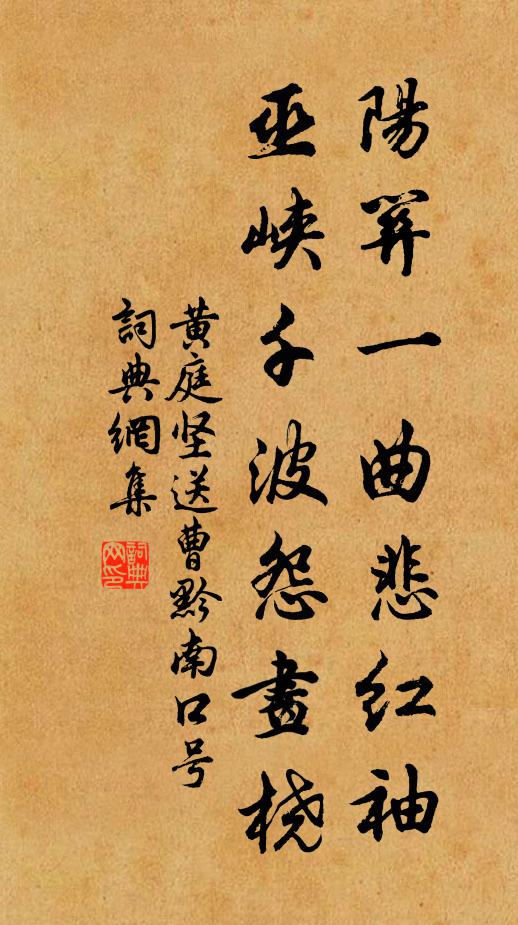 陽關一曲悲红袖
巫峽千波怨畫桡
黄庭坚送曹黔南口号
詞典網集
詞典网印